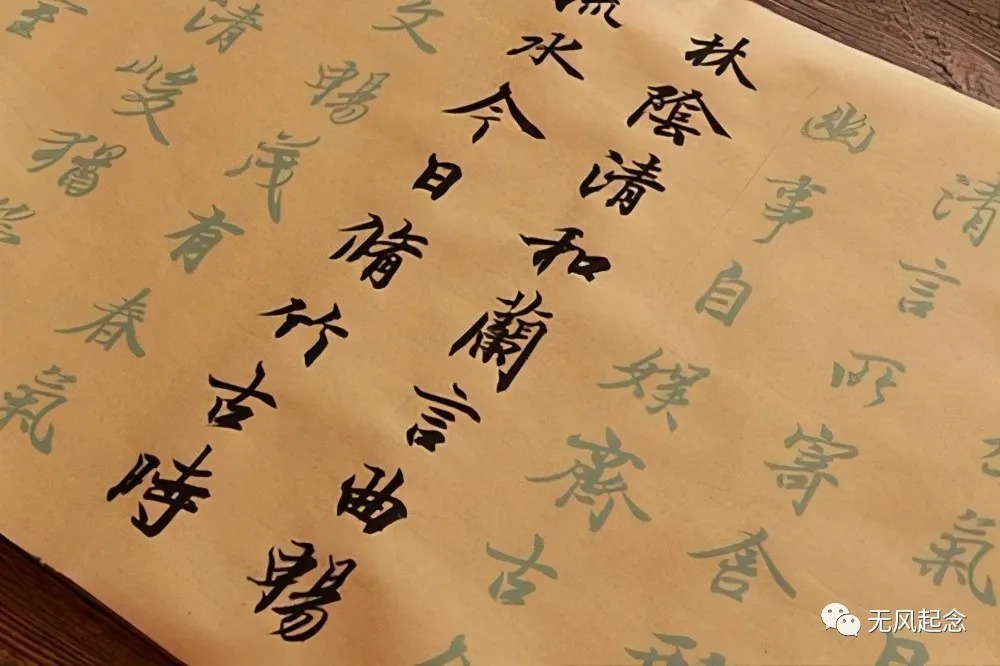 氣日
清言所寄舍
幽事自娛齋古
林陰清和蘭言曲暢
流水今日脩竹古時
文暢茂有春氣
清峻猶
室
无风起念